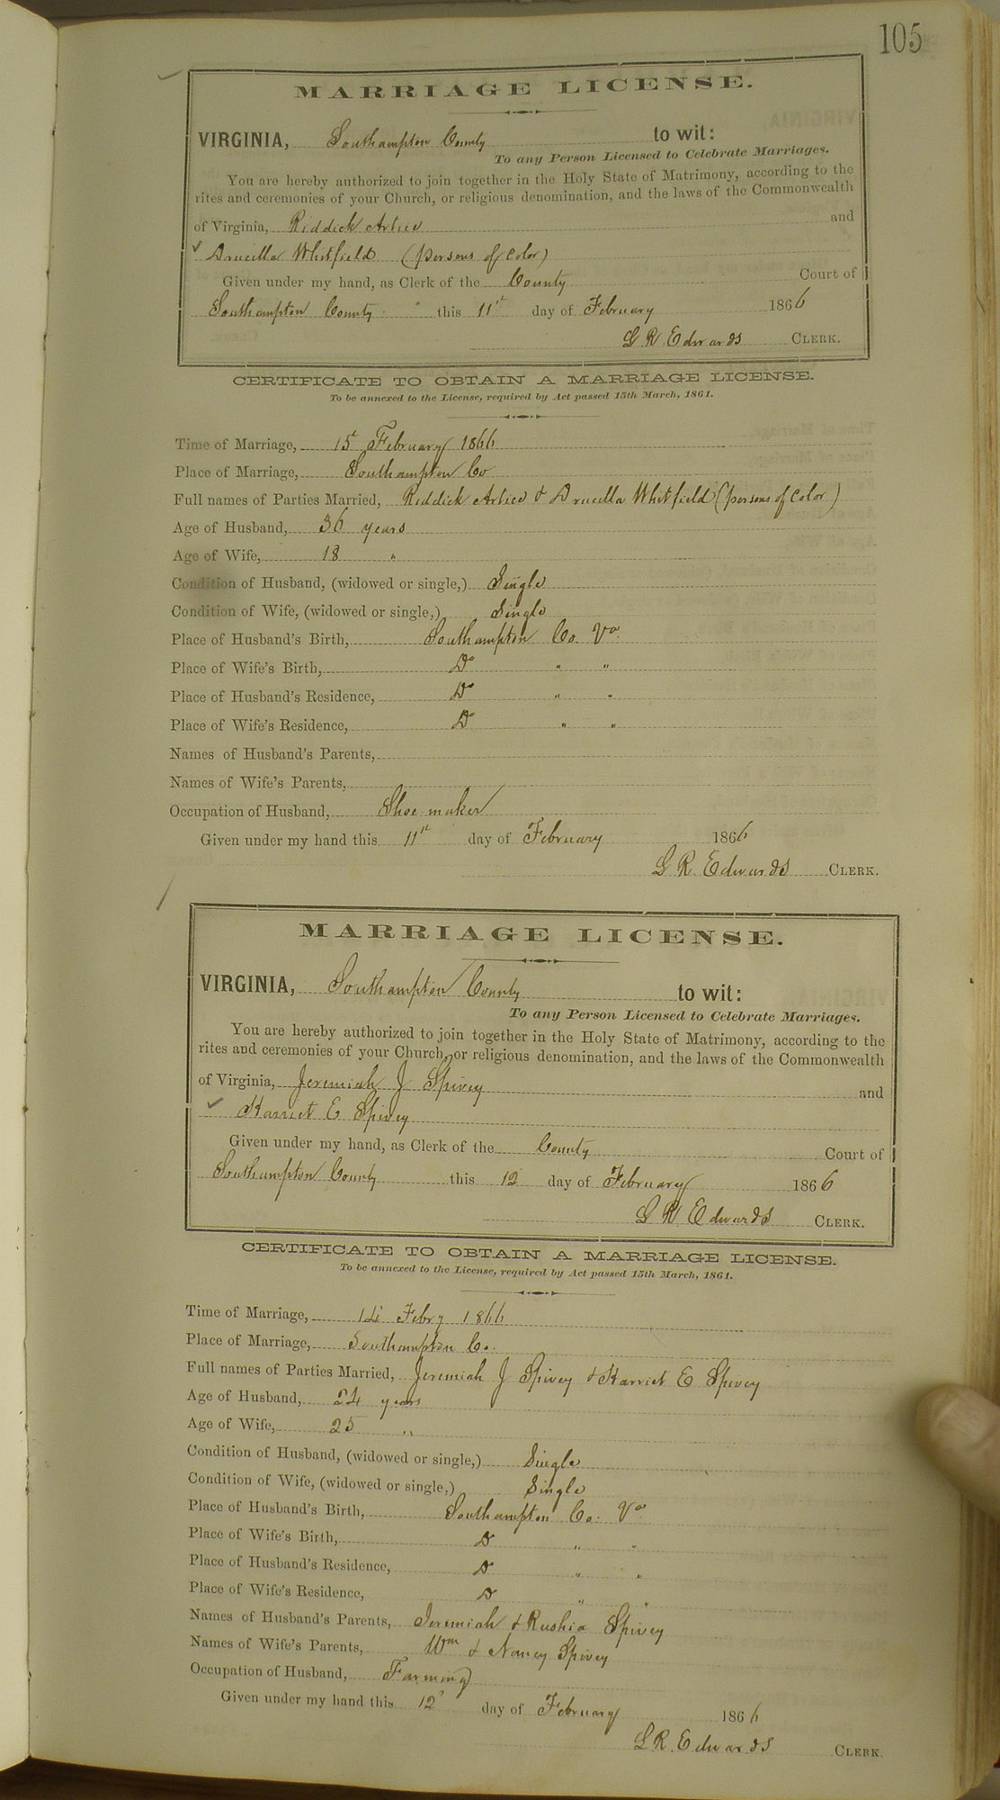 105
MARRIAGE LICENSE.
VIRGINIA, Southampton County to wit:
To any Person Licensed to Celebrate Marriages.
You are hereby authorized to join together in the Holy State of Matrimony, according to the
rites and ceremonies of your Church, or religious denomination, and the laws of the Commonwealth
of Virginia, Riddick Artice and
Drucilla Whitfield (persons of color)
Given under my hand, as Clerk of the County Court of
Southampton County this 11th day of February 1866
L R Edwards CLERK.
CERTIFICATE TO OBTAIN A MARRIAGE LICENSE.
To be annexed to the License, required by Act passed 15th March, 1861.
Time of Marriage, 15t February 1866
Place of Marriage, Southampton Co
Full names of Parties Married, Riddick Artice & Drucilla Whitfield (persons of color)
Age of Husband, 36 years
Age of Wife, 18 "
Condition of Husband, (widowed or single,) Single
Condition of Wife, (widowed or single,) Single
Place of Husband's Birth, Southampton Co. Va.
Place of Wife's Birth, Do " "
Place of Husband's Residence, Do " "
Place of Wife's Residence, Do " "
Names of Husband's Parents,
Names of Wife's Parents,
Occupation of Husband, Shoe maker
Given under my hand this 11th day of February 1866
L R Edwards CLERK.
MARRIAGE LICENSE.
VIRGINIA, Southampton County to wit:
To any Person Licensed to Celebrate Marriages.
You are hereby authorized to join together in the Holy State of Matrimony, according to the
rites and ceremonies of your Church, or religious denomination, and the laws of the Commonwealth
of Virginia, Jeremiah J Spivey and
Harriet E Spivey
Given under my hand, as Clerk of the County Court of
Southampton County this 12 day of February 1866
L R Edwards CLERK.
CERTIFICATE TO OBTAIN A MARRIAGE LICENSE.
To be annexed to the License, required by Act passed 15th March, 1861.
Time of Marriage, 14 Febry 1866
Place of Marriage, Southampton Co.
Full names of Parties Married, Jeremiah J Spivey & Harriet E Spivey
Age of Husband, 24 years
Age of Wife, 25 "
Condition of Husband, (widowed or single,) Single
Condition of Wife, (widowed or single,) Single
Place of Husband's Birth, Southampton Co. Va
Place of Wife's Birth, Do " "
Place of Husband's Residence, Do " "
Place of Wife's Residence, Do " "
Names of Husband's Parents, Jeremiah & Rushia Spivey
Names of Wife's Parents, Wm & Nancy Spivey
Occupation of Husband, Farming
Given under my hand this 12 day of February 1866
L R. Edwards CLERK.